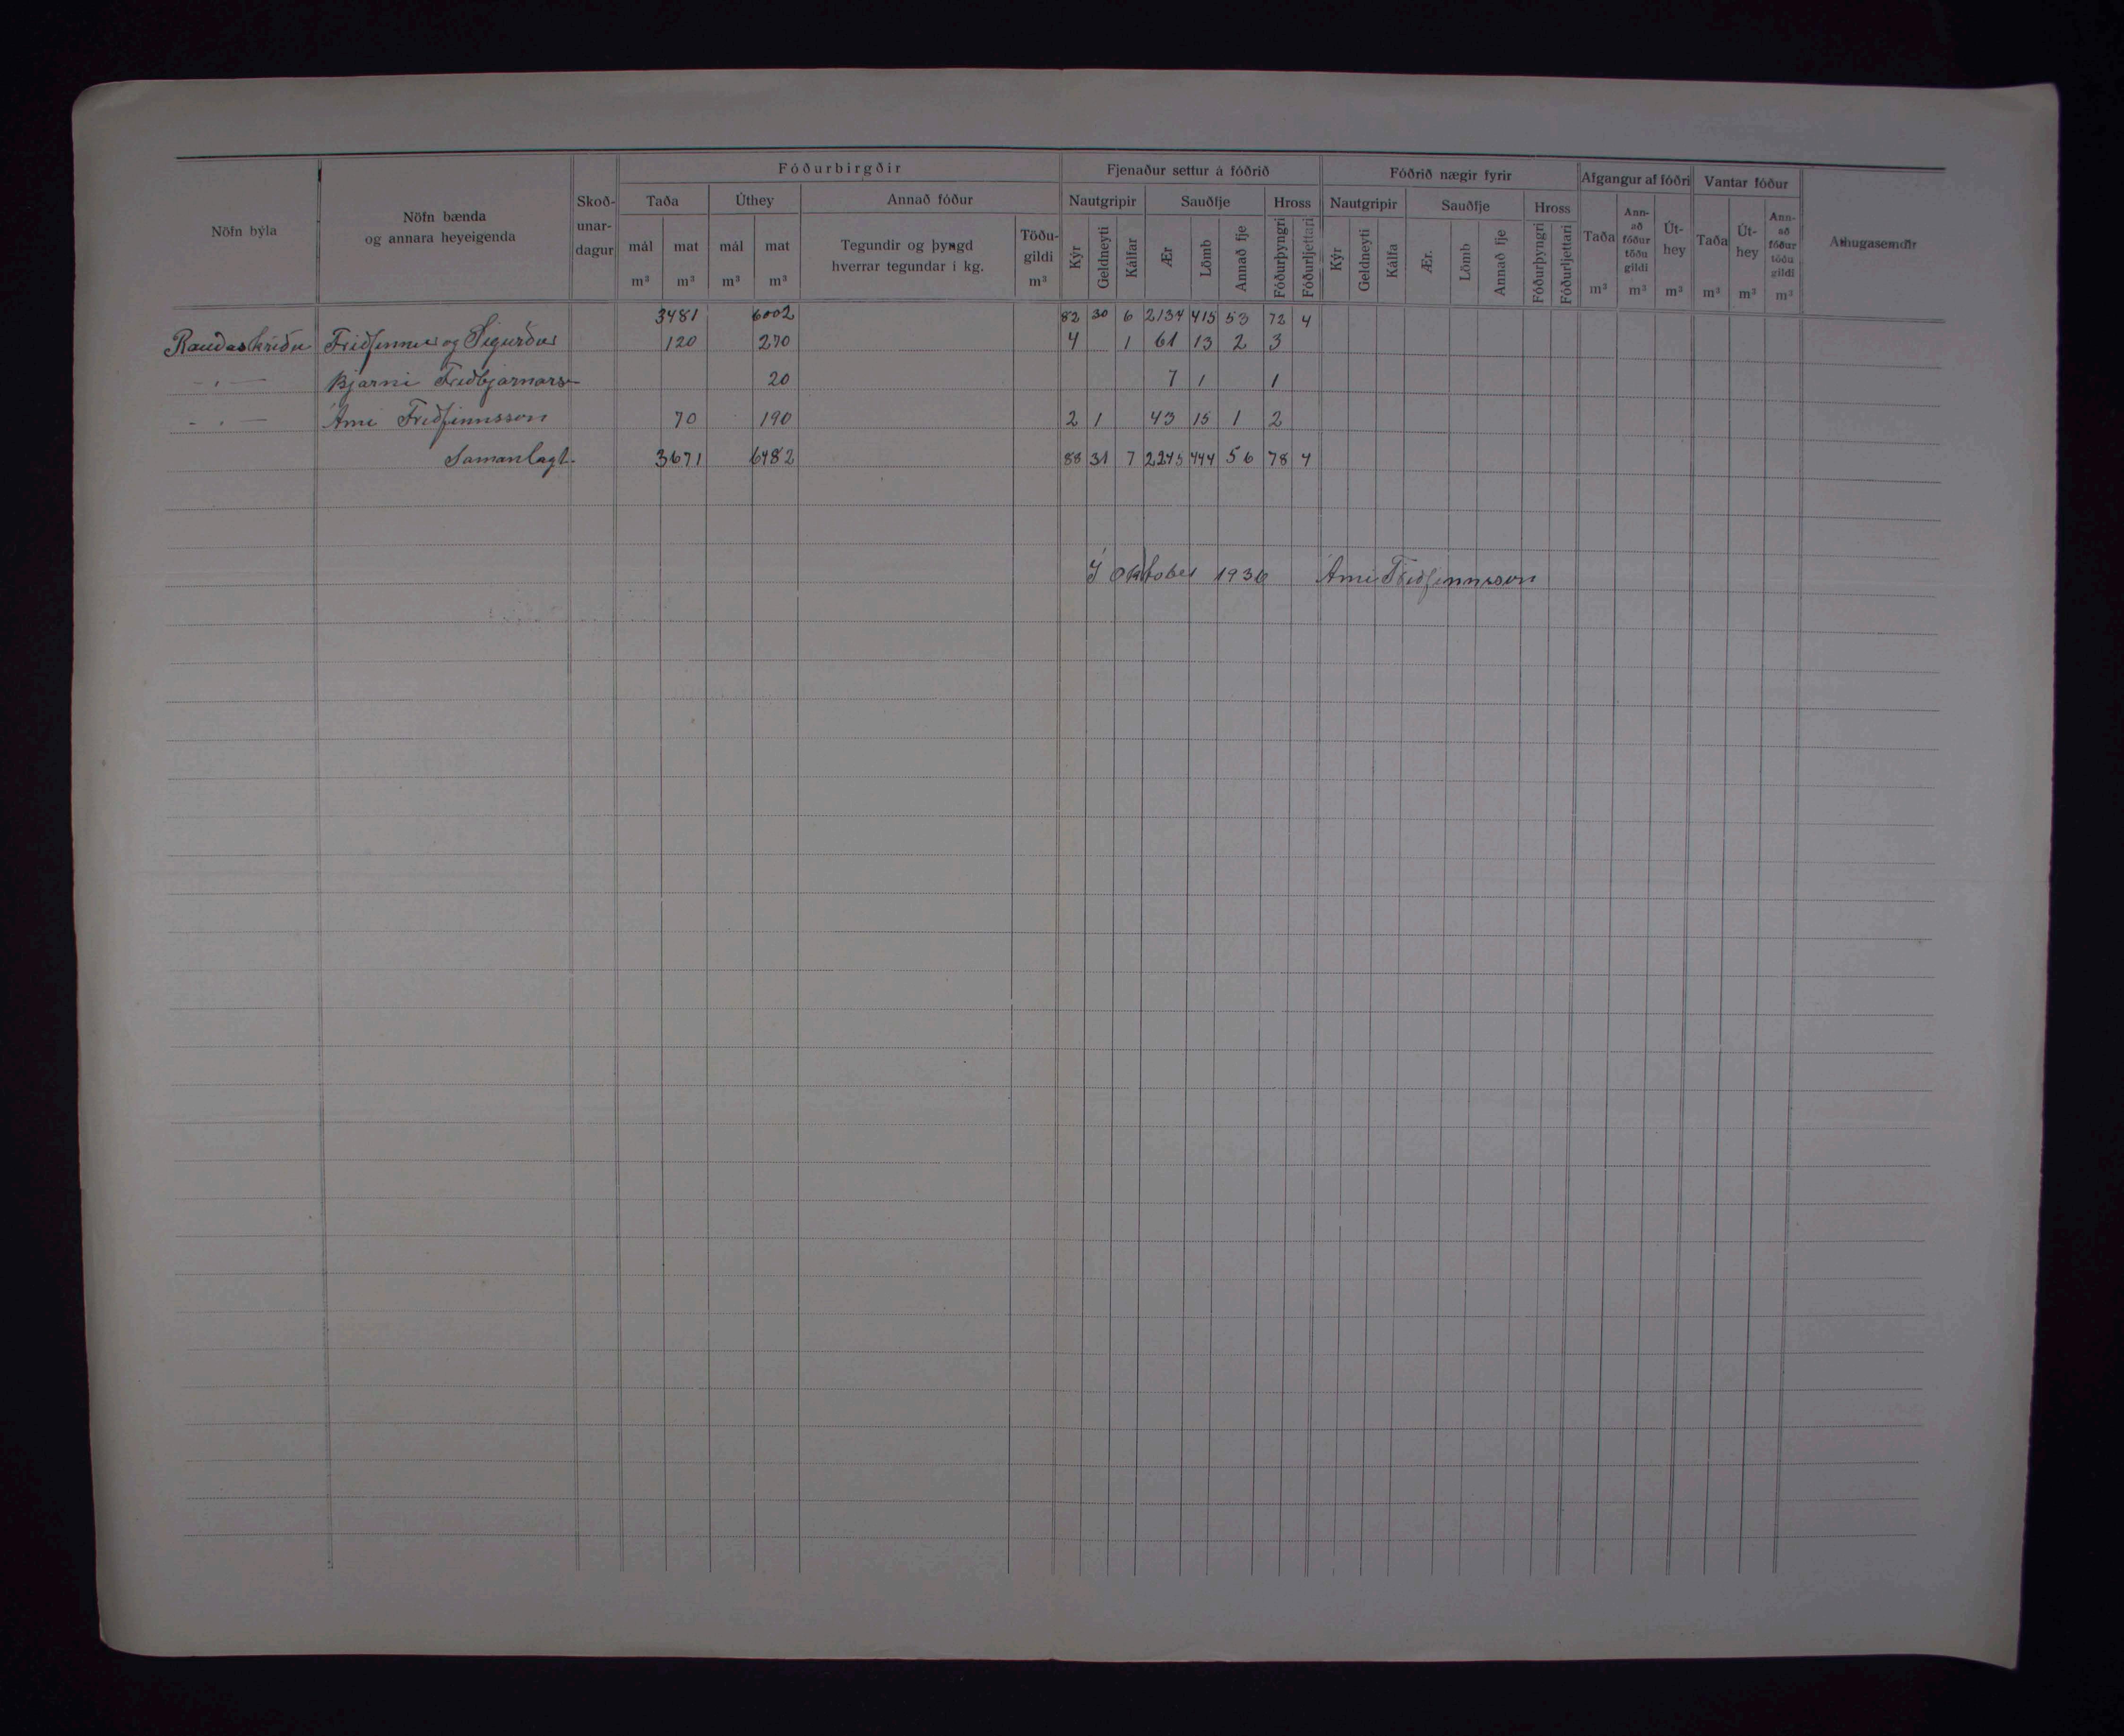 Fóðurbirgðir Fjenaður settur á fóðrið Fóðrið nægir fyrir Afgangur af fóðri Vantar fóður
Nöfn býla Nöfn bænda og annara heyeigenda Skoð-unar-dagur Taða Úthey Annað fóður Nautgripir Sauðfje Hross Nautgripir Sauðfje Hross Taða Ann-að fóður töðu gildi Út-hey Taða Út-hey Ann-að fóður töðu gildi Athugasemdir
mál mat mál mat Tegundir og þyngd hverrar tegundar í kg. Töðu-gildi Kýr Geldneyti Kálfar Ær Lömb Annað fje Fóðurþyngri Fóðurljettari Kýr Geldneyti Kálfa Ær. Lömb Annað fje Fóðurþyngri Fóðurljettari
m³ m³ m³ m³ m³ m³ m³ m³ m³ m³ m³
3481 6002 82 30 6 2134 415 53 72 4
Raudaskriðu Friðfinnur og Sigurður 120 270 4 1 61 13 2 3
- " - Bjarni Friðbjarnarson 20 7 1 1
- " - Árni Friðfinnsson 70 190 2 1 43 15 1 2
Samanlagt. 3671 6482 88 31 7 2245 444 56 78 4
Í oktober 1936 Árni Friðfinnsson